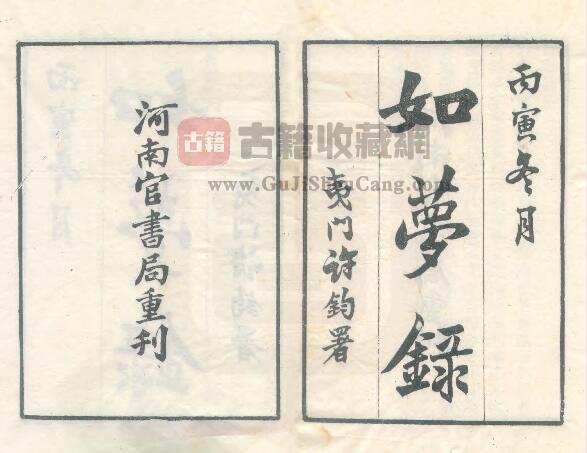 丙寅冬月
如夢錄
夷門許鈞署
河南官書局重刊
古籍
古籍收藏網
www.GuJiShouCang.com